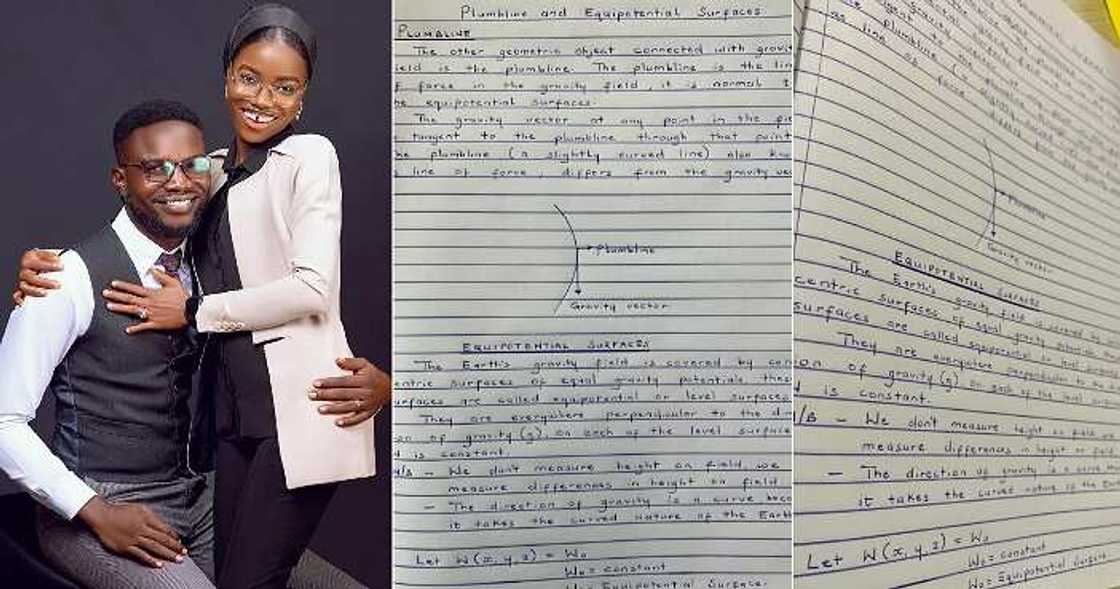 Plumbline and Equipotential Surfaces
PLUMBLINE
The other geometric object connected with gravit
ield is the plumbline. The plumbline is the lin
f force in the gravity field, it is normal
he equipotential surfaces.
The gravity vector at any point in the fie
tangent to the plumbline through that point
he plumbline (a slightly curved line) also
s line of force, differs from the gravity vec
Plumbline
Gravity vector
EQUIPOTENTIAL SURFACES
The Earth's gravity field is covered by con
entric surfaces of equal gravity potentials these
urfaces are called equipotential or level surfaces.
They are everywhere perpendicular to the d
on of gravity (g), on each of the level surface
d is constant.
N/B - We don't measure height on field, we
measure differences in height on field
- The direction of gravity is a curve beca
it takes the curved nature of the Earth
Let W(x, y, z) = W₀
W₀ = constant
W₀ = Equipotential Surface.
plumbline
as line of force
Plumbline
Gravity vector
EQUIPOTENTIAL SURFACES
The Earth's gravity field is covered by
centric surfaces of equal gravity potentials
surfaces are called equipotential or level surfaces
They are everywhere perpendicular to
on of gravity (g) on each of the level surface
d is constant.
N/B - We don't measure height on field
measure differences in height on field
- The direction of gravity is a curve
it takes the curved nature of the
Let W(x, y, z) = W₀
W₀ = constant
W₀ = Equipotential Surface